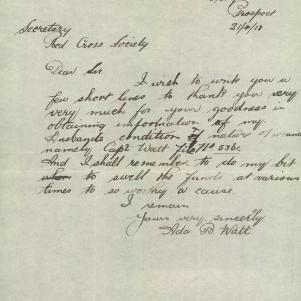 Prospect
Secretary
Red Cross Society
Dear Sir
I wish to write you a
few short lines to thank you very
very much for your goodness in
obtaining information of my
husbands condition & nature of wound
namely Capt Watt File No 5361.
And I shall remember to do my bit
to swell the funds at various
times to so worthy a cause.
I remain
Yours very sincerely
Ada D Watt.